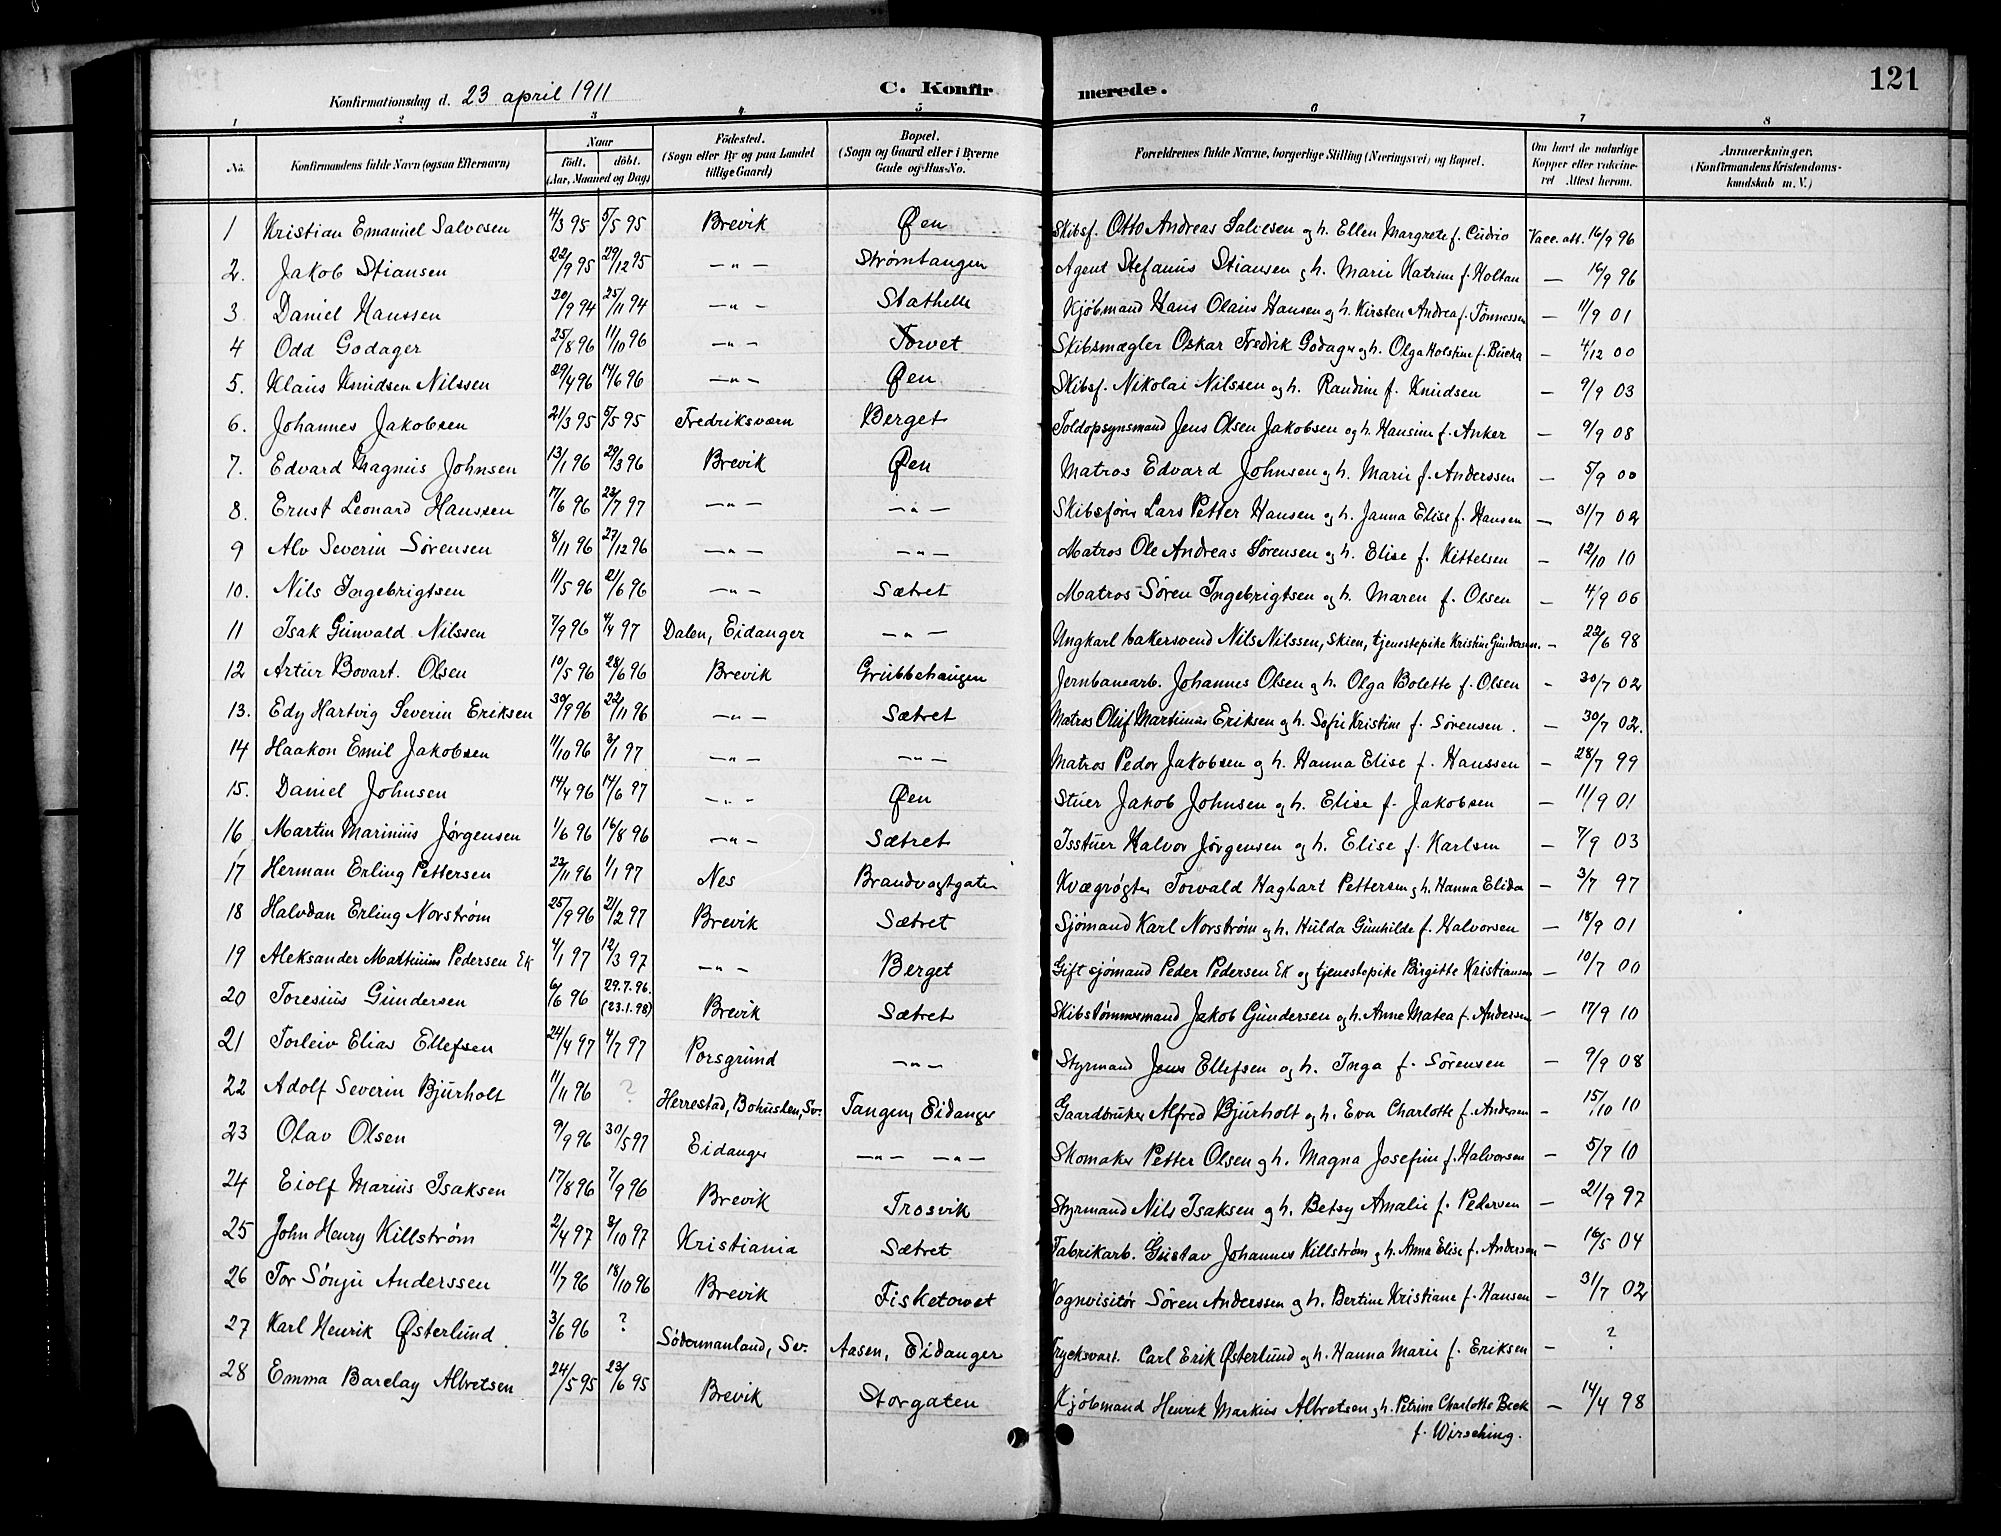 121
Konfirmationsdag d. 23 april 1911 C. Konfir merede.
1 2 3 4 5 6 7 8
No. Konfirmandens fulde Navn (ogsaa Efternavn) Naar født. døbt. (Aar, Maaned og Dag) Födested. (Sogn eller By og paa Landet tillige Gaard) Bopæl. (Sogn og Gaard eller i Byerne Gade og Hus-No. Forældrenes fulde Navne, borgerlige Stilling (Næringsvei) og Bopæl. Om havt de naturlige Kopper eller vakcineret Attest herom. Anmærkninger, (Konfirmandens Kristendomskundskab m. V.)
1 Kristian Emanuel Salvesen 4/3 95 5/5 95 Brevik Øen Skibsf. Otto Andreas Salvesen og h. Ellen Margrete f. Cudrio Vacc. att. 16/9 96
2. Jakob Stiansen 22/9 95 29/12 95 —"— Strømtangen Agent Stefanus Stiansen og h. Marie Katrine f. Holtan — 16/9 96
3 Daniel Hanssen 20/9 94 25/11 94 —"— Stathelle Kjøbmand Hans Olaus Hansen og h. Kirsten Andrea f. Tønnessen — 11/9 01
4 Odd Godager 25/8 96 11/10 96 —"— Torvet Skibsmægler Oskar Fredrik Godager og h. Olga Holstine f. Bucka — 4/12 00
5. Klaus Knudsen Nilssen 29/4 96 14/6 96 —"— Øen Skibsf. Nikolai Nilssen og h. Randine f. Knudsen — 9/9 03
6. Johannes Jakobsen 21/3 95 5/5 95 Fredriksværn Berget Toldopsynsmand Jens Olsen Jakobsen og h. Hansine f. Anker — 9/9 08
7. Edvard Magnus Johnsen 13/1 96 29/3 96 Brevik Øen Matros Edvard Johnsen og h. Marie f. Anderssen — 5/9 00
8. Ernst Leonard Hanssen 17/6 96 23/7 97 —"— —"— Skibsfører Lars Petter Hansen og h. Janna Elise f. Hansen — 31/7 02
9 Alv Severin Sørensen 8/11 96 27/12 96 —"— —"— Matros Ole Andreas Sørensen og h. Elise f. Kittelsen — 12/10 10
10. Nils Ingebrigtsen 11/5 96 21/6 96 —"— Sætret Matros Søren Ingebrigtsen og h. Maren f. Olsen — 4/9 06
11 Isak Gunvald Nilssen 7/9 96 4/4 97 Dalen, Eidanger —"— Ungkarl bakersvend Nils Nilssen, Skien, tjenestepike Kristine Gundersen. — 22/6 98
12 Artur Bovart. Olsen 10/5 96 28/6 96 Brevik Grubbehaugen Jernbanearb. Johannes Olsen og h. Olga Bolette f. Olsen — 30/7 02
13. Edy Hartvig Severin Eriksen 30/9 96 22/11 96 —"— Sætret Matros Oluf Martinius Eriksen og h. Sofie Kristine f. Sørensen. — 30/7 02.
14 Haakon Emil Jakobsen 11/10 96 3/1 97 —"— —"— Matros Peder Jakobsen og h. Hanna Elise f. Hanssen — 28/7 99
15. Daniel Johnsen 14/4 96 14/6 97 —"— Øen Stuer Jakob Johnsen og h. Elise f. Jakobsen — 11/9 01
16 Martin Marinius Jørgensen 1/6 96 16/8 96 —"— Sætret Isstuer Halvor Jørgensen og h. Elise f. Karlsen — 7/9 03
17 Herman Erling Pettersen 23/11 96 1/1 97 Nes Brandvagtgaten Kvægrøgter Torvald Hagbart Pettersen og h. Hanna Elida — 3/7 97
18 Halvdan Erling Norstrøm 25/9 96 21/2 97 Brevik Sætret Sjømand Karl Norstrøm og h. Hulda Gunhilde f. Halvorsen — 18/9 01
19 Aleksander Mathinius Pedersen Ek 4/1 97 12/3 97 —"— Berget Gift sjømand Peder Pedersen Ek og tjenestepike Birgitte Kristiansen — 10/7 00
20 Toresius Gundersen 6/6 96 29.7.96. (23.1.98) Brevik Sætret Skibstømmermand Jakob Gundersen og h. Anne Matea f. Andersen — 17/9 10
21 Torleiv Elias Ellefsen 24/4 97 4/7 97 Porsgrund —"— Styrmand Jens Ellefsen og h. Inga f. Sörensen — 9/9 08
22 Adolf Severin Bjurholt 11/11 96 ? Herrestad, Bohuslen, Sv. Tangen, Eidanger Gaardbruker Alfred Bjurholt og h. Eva Charlotte f. Andersen — 15/10 10
23 Olav Olsen 9/9 96 30/5 97 Eidanger —"— —"— Skomaker Petter Olsen og h. Magna Josefine f. Halvorsen — 5/7 10
24 Eiolf Marius Isaksen 17/8 96 7/9 96 Brevik Trosvik Styrmand Nils Isaksen og h. Betsy Amalie f. Pedersen — 21/9 97
25 John Henry Killstrøm 2/4 97 8/10 97 Kristiania Sætret Fabrikarb. Gustav Johannes Killstrøm og h. Anna Elise f. Andersen — 16/5 04
26 Tor Sónju Anderssen 11/7 96 18/10 96 Brevik Fisketorvet Vognvisitør Sören Anderssen og h. Bertine Kristiane f. Hansen — 31/7 02
27 Karl Henrik Østerlund. 3/6 96 ? Södermanland, Sv. Aasen, Eidanger Trycksvart. Carl Erik Østerlund og h. Hanna Marie f. Eriksen — ?
28 Emma Barclay Albretsen 24/5 95 23/6 95 Brevik Storgaten Kjøbmand Henrik Markus Albretsen og h. Petrine Charlotte Beck — 14/4 98
f. Wirsching.